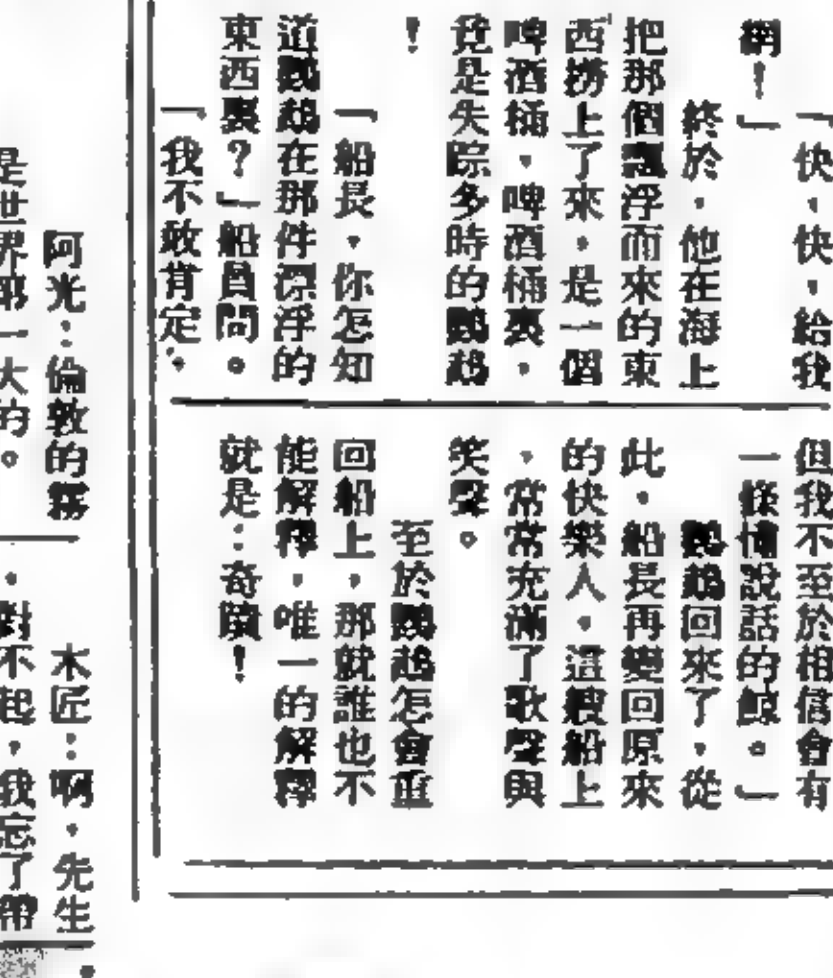 「快,快,給我
網!」
終於,他在海上
把那個飄浮而來的東
西撈上了來,是一個
啤酒桶,啤酒桶裏,
竟是失踪多時的鸚鵡
!
「船長,你怎知
道鸚鵡在那件漂浮的
東西裏?」船員問。
「我不敢肯定,
但我不至於相信會有
一條懂說話的鯨。」
鸚鵡回來了,從
此,船長再變回原來
的快樂人,這艘船上
,常常充滿了歌聲與
笑聲。
至於鸚鵡怎會重
回船上,那就誰也不
能解釋,唯一的解釋
就是:奇蹟!
阿光:倫敦的霧
是世界第一大的。
木匠:啊,先生
,對不起,我忘了帶